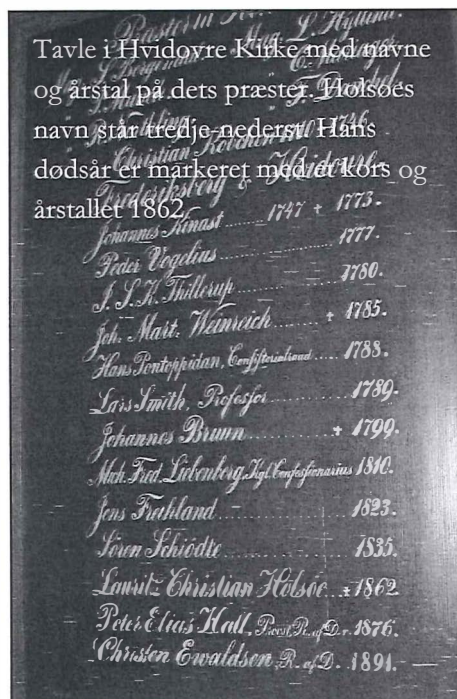 Pastorer
Mag. L. Hyllend.
Tavle i Hvidovre Kirke med navne
og årstal på dets præster. Holsøes
navn står tredje-nederst. Hans
dødsår er markeret med et kors og
årstallet 1862
Christian 1710 1746
Frederiksberg & Hvidovre
Johannes Kinast ........ 1747 + 1773.
Peder Vogelius ................ 1777.
J. S. K. Thillerup ................ 1780.
Joh: Mart: Weinreich ........ + 1785.
Hans Pontoppidan, Consistorialraad .... 1788.
Lars Smith, Professor ................ 1789.
Johannes Bruun ................ + 1799.
Mich. Fred. Liebenberg, Kgl. Confessionarius 1810.
Jens Freihland ................ 1823.
Sören Schiödte ................ 1835.
Lauritz Christian Hölsöe ..+ 1862
Peter Elias Hall, Provst, R. af D. + 1876.
Christen Ewaldsen, R. af D. 1891.